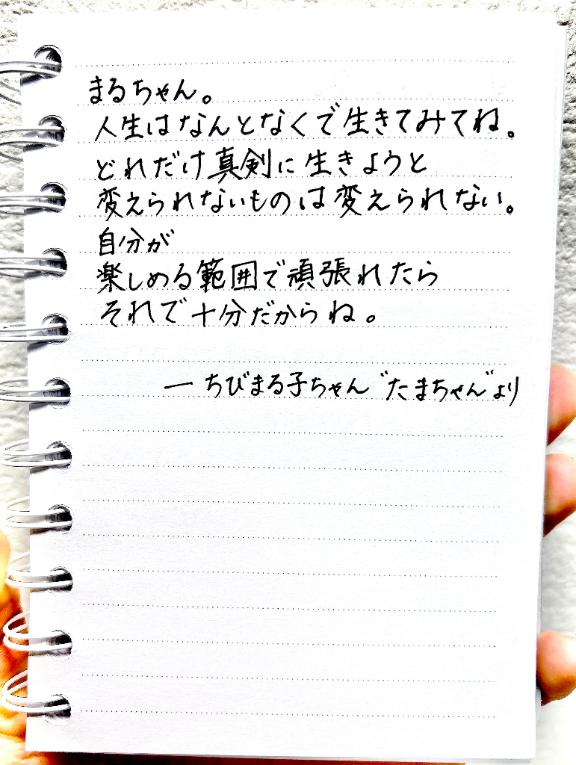 まるちゃん。
人生はなんとなくで生きてみてね。
どれだけ真剣に生きようと
変えられないものは変えられない。
自分が
楽しめる範囲で頑張れたら
それで十分だからね。
ー ちびまる子ちゃん "たまちゃん"より